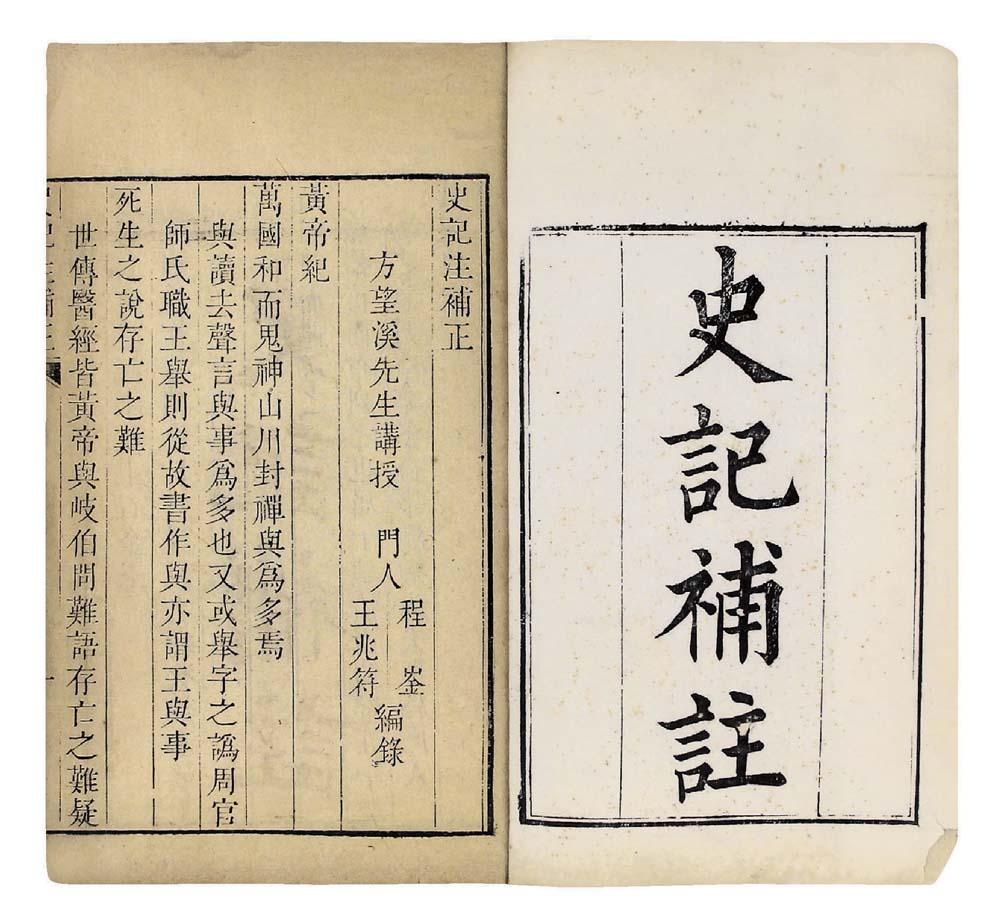 史記補註
史記注補正
方望溪先生講授　門人程崟王兆符編錄
黃帝紀
萬國和而鬼神山川封禪與爲多焉
與讀去聲言與事爲多也又或舉字之譌周官
師氏職王舉則從故書作與亦謂王與事
死生之說存亡之難
世傳醫經皆黃帝與岐伯問難語存亡之難疑